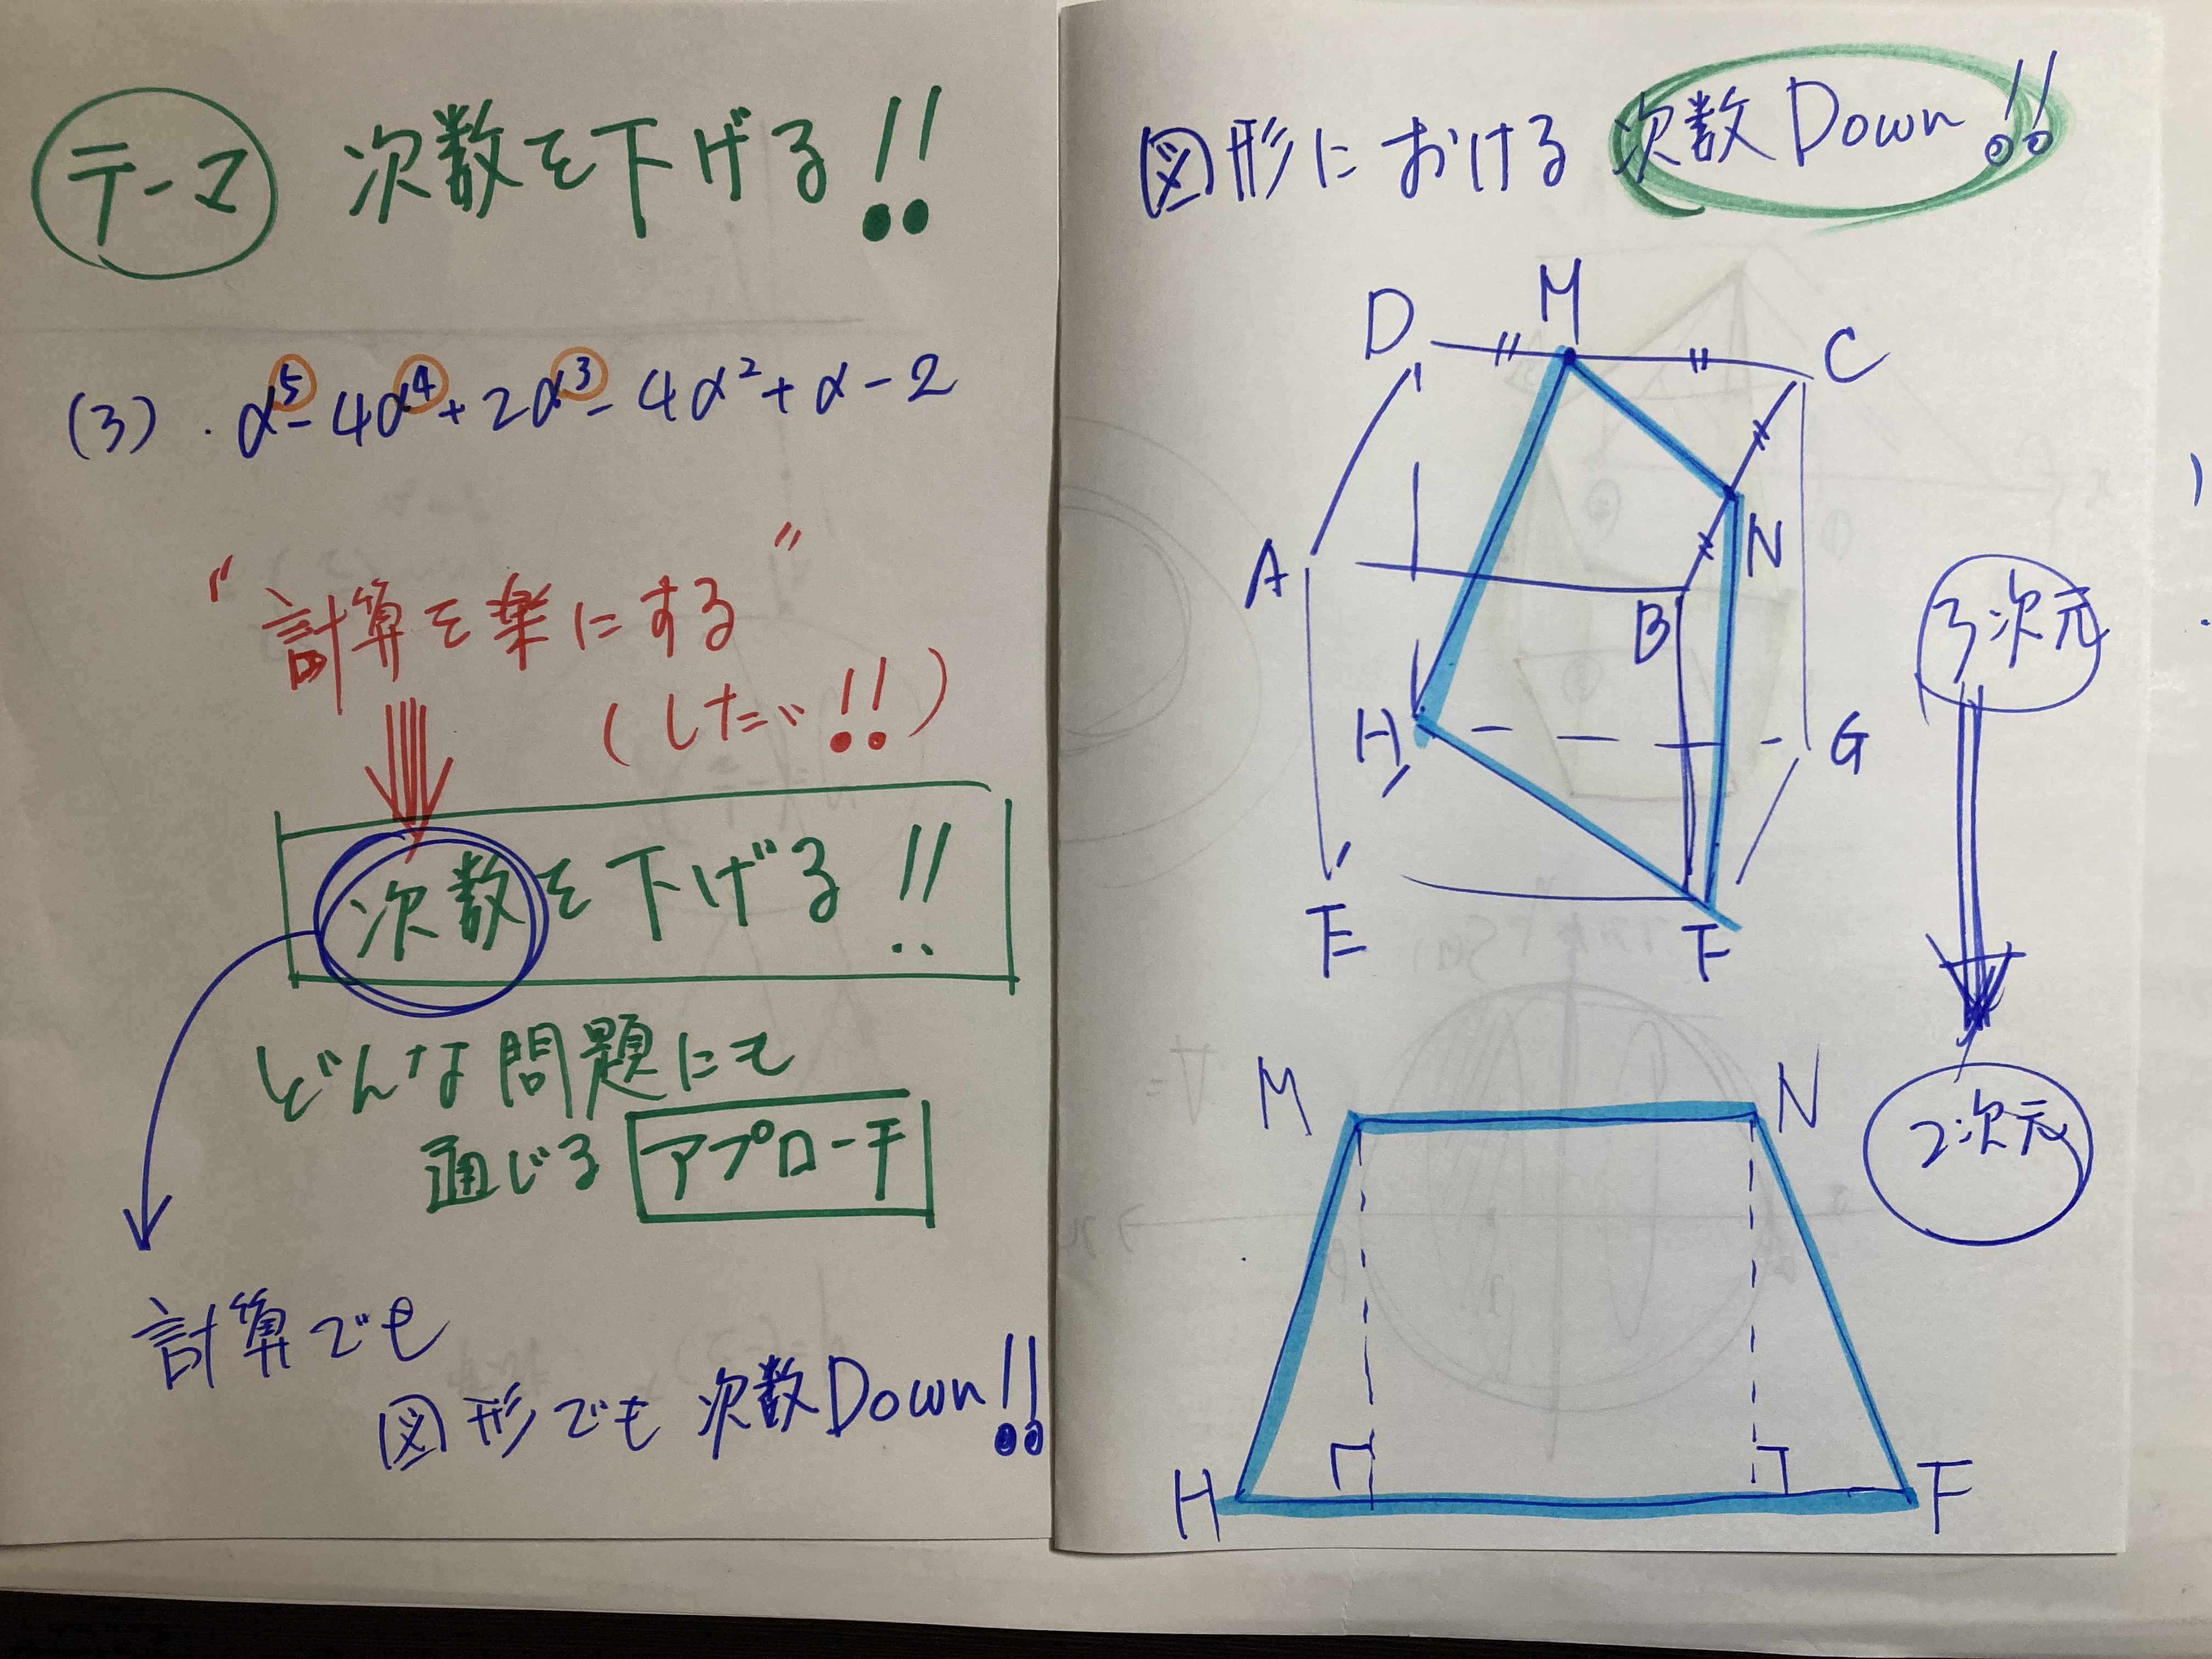 テーマ 次数を下げる!!
(3). α⁵-4α⁴+2α³-4α²+α-2
"計算を楽にする"
(したい!!)
次数を下げる!!
どんな問題にも
通じる アプローチ
計算でも
図形でも 次数Down!!
図形における 次数Down!!
D M C
A B N
H G
E F
3次元
2次元
M N
H F